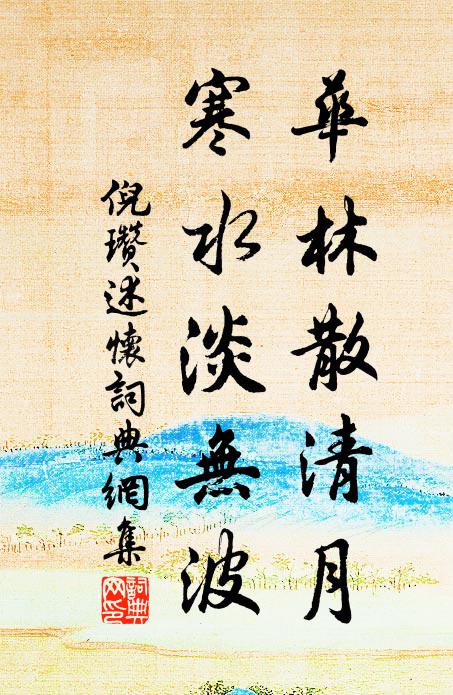 華林散清月
寒水淡無波
倪瓚述懷詞典網集
詞典